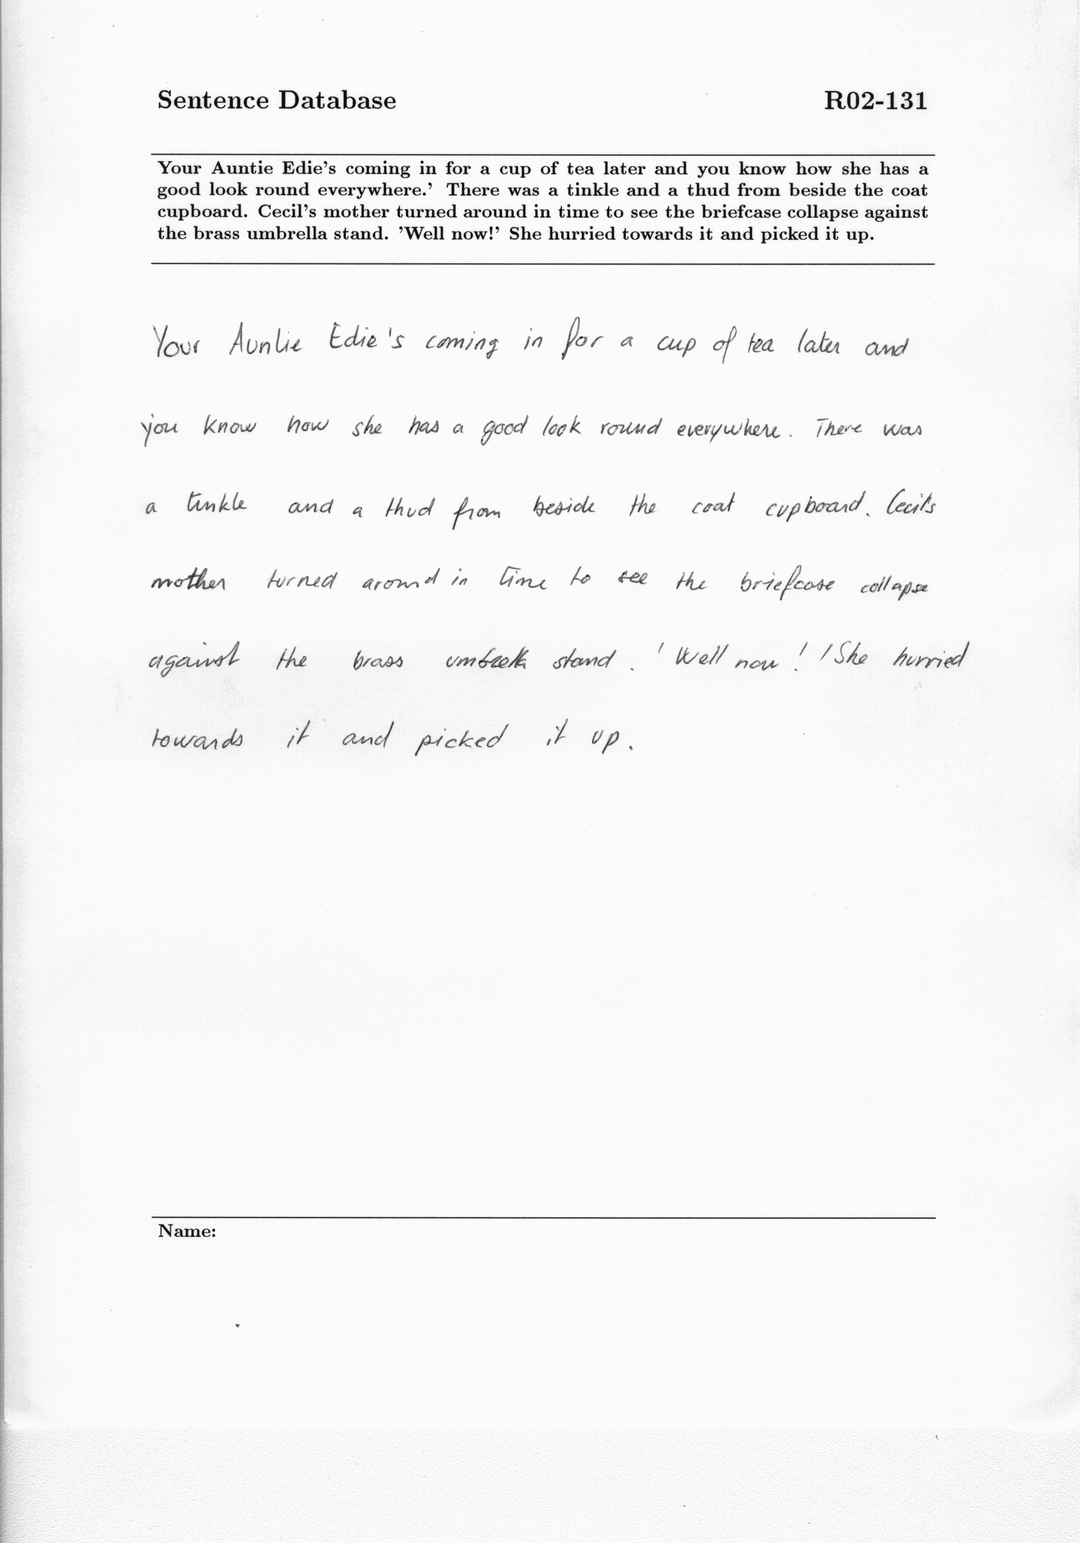 Sentence Database R02-131
Your Auntie Edie's coming in for a cup of tea later and you know how she has a
good look round everywhere.' There was a tinkle and a thud from beside the coat
cupboard. Cecil's mother turned around in time to see the briefcase collapse against
the brass umbrella stand. 'Well now!' She hurried towards it and picked it up.
Your Auntie Edie's coming in for a cup of tea later and
you know how she has a good look round everywhere. There was
a tinkle and a thud from beside the coat cupboard. Cecil's
mother turned around in time to see the briefcase collapse
against the brass stand. 'Well now!' She hurried
towards it and picked it up.
Name: